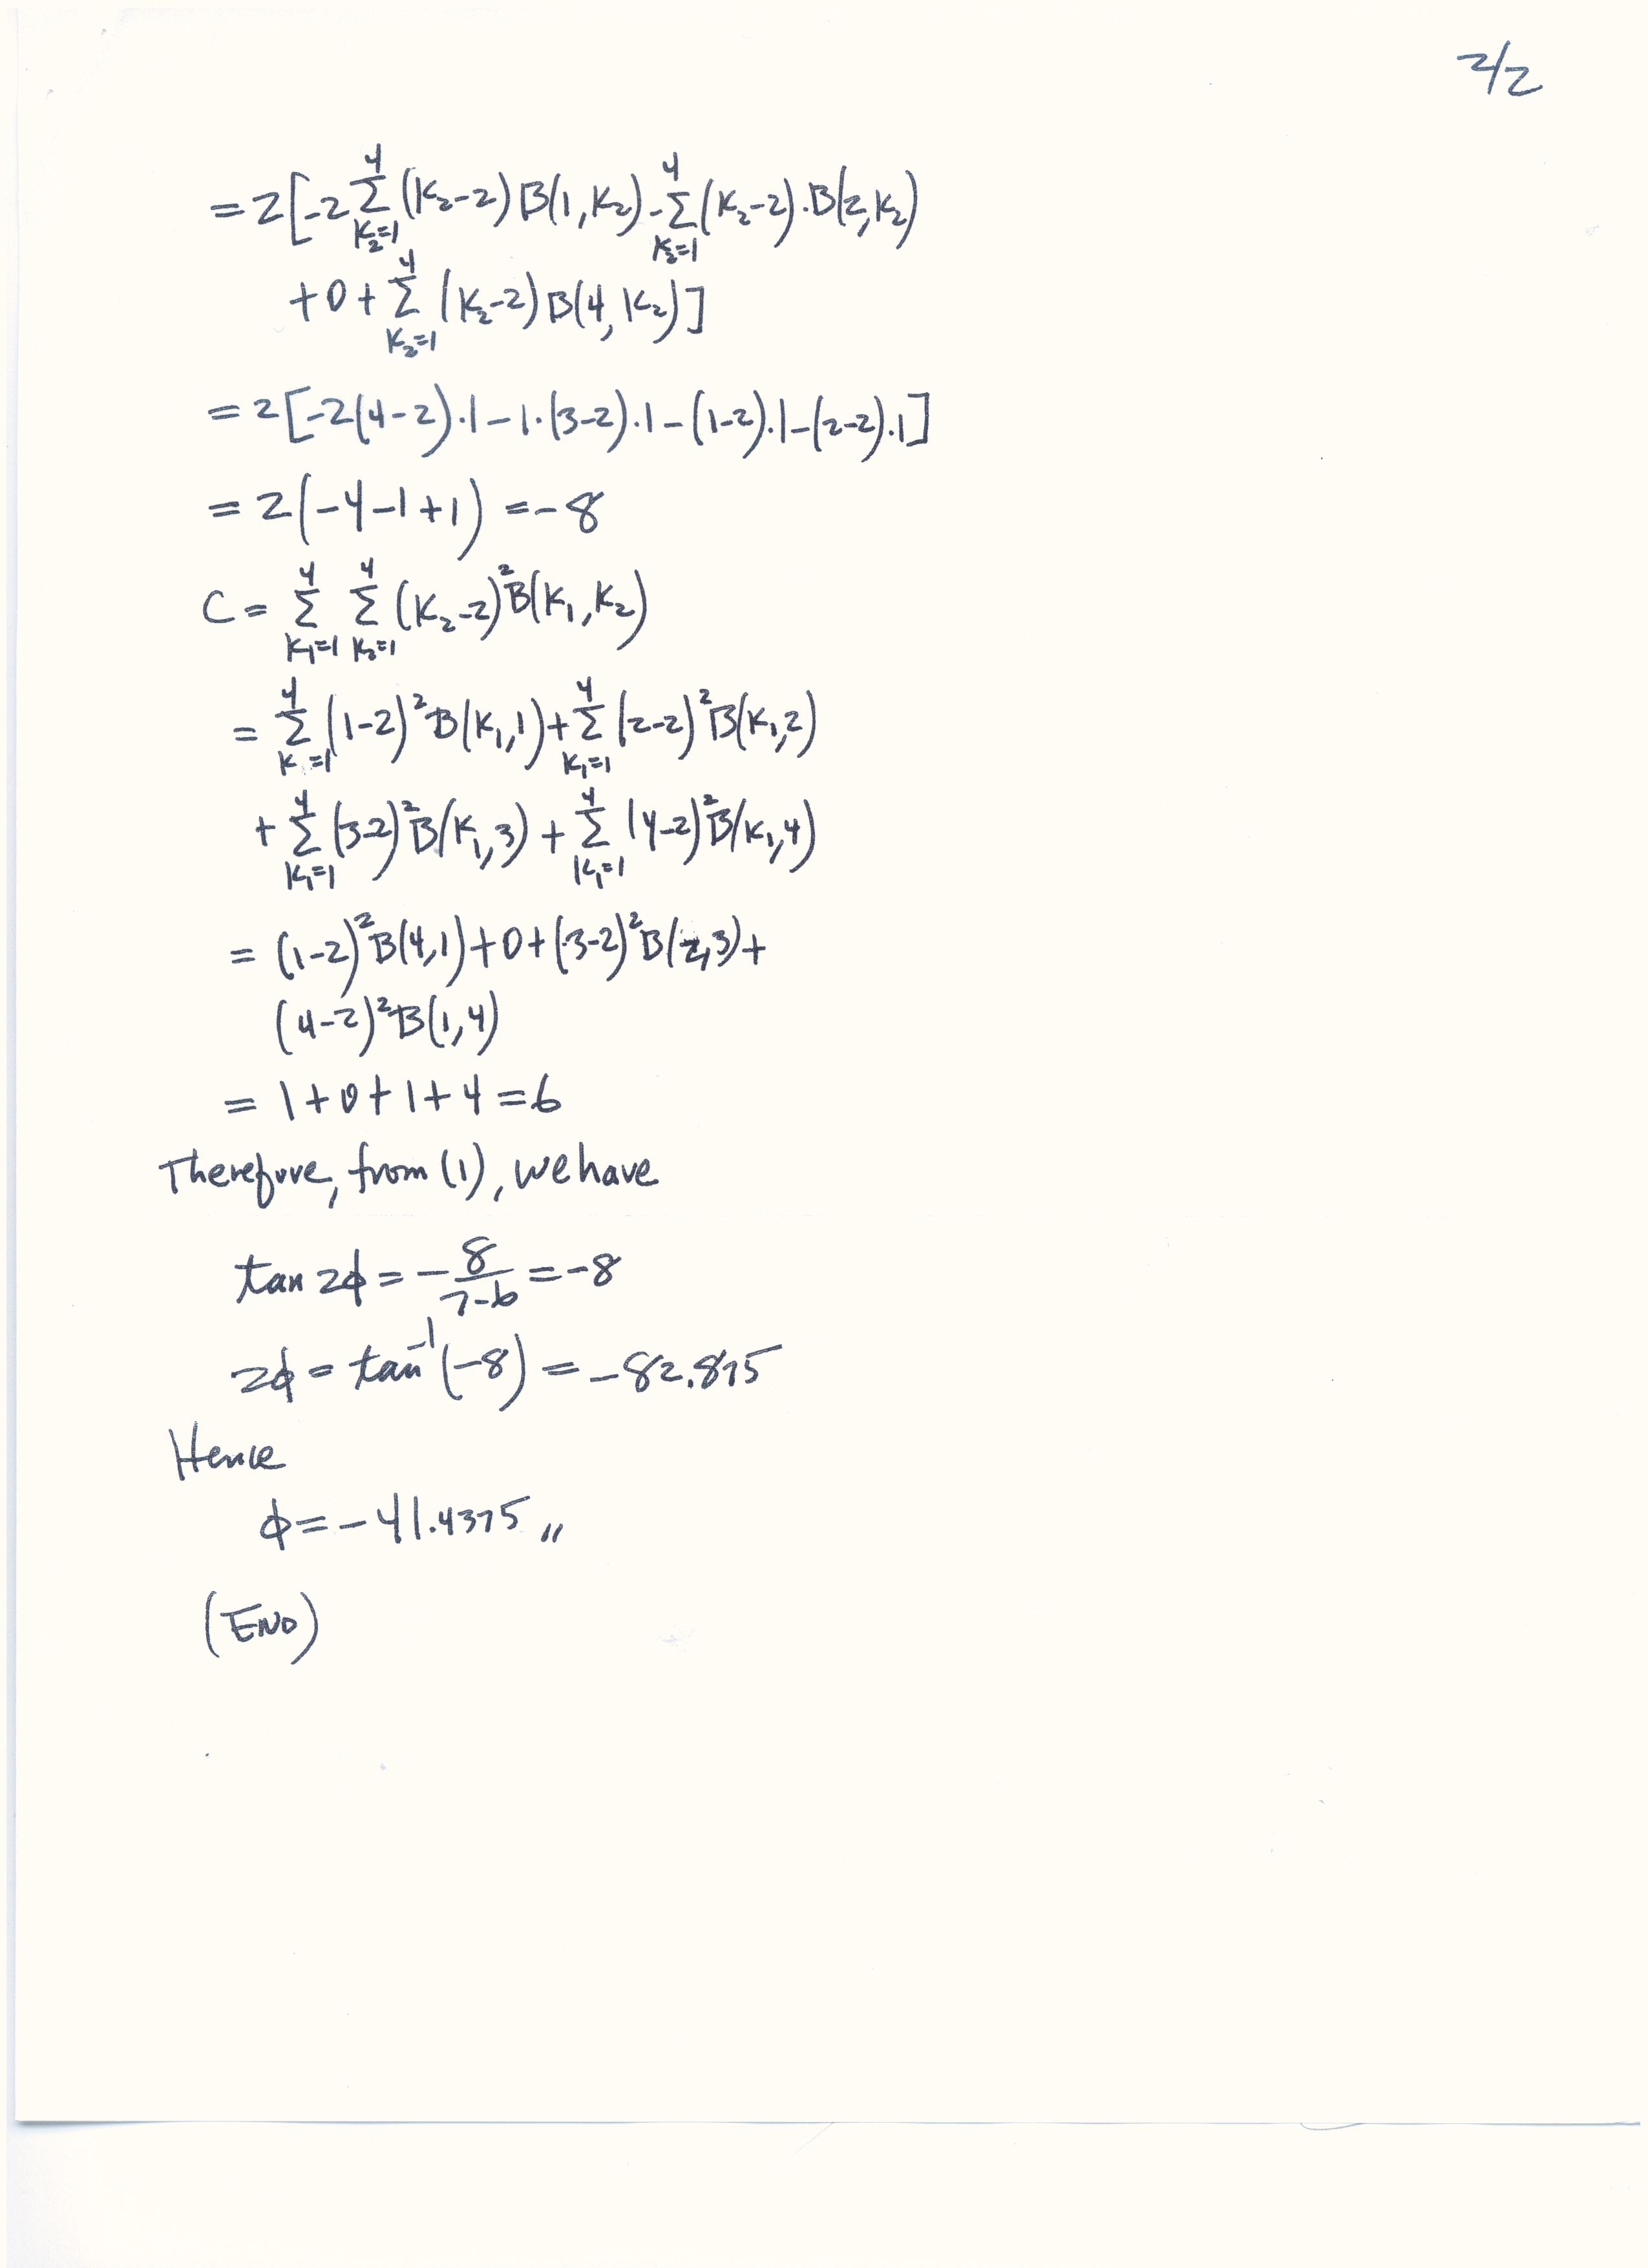 2/2
= 2[-2 Σ_{K₂=1}^{4} (K₂-2) B(1,K₂) - Σ_{K₂=1}^{4} (K₂-2)·B(2,K₂)
+0+ Σ_{K₂=1}^{4} (K₂-2) B(4,K₂)]
= 2[-2(4-2)·1-1·(3-2)·1-(1-2)·1-(2-2)·1]
= 2(-4-1+1) = -8
C = Σ_{K₁=1}^{4} Σ_{K₂=1}^{4} (K₂-2)²B(K₁,K₂)
= Σ_{K=1}^{4} (1-2)²B(K₁,1) + Σ_{K₁=1}^{4} (2-2)²B(K₁,2)
+ Σ_{K₁=1}^{4} (3-2)²B(K₁,3) + Σ_{K₁=1}^{4} (4-2)²B(K₁,4)
= (1-2)²B(4,1)+0+(3-2)²B(2,3)+
(4-2)²B(1,4)
= 1+0+1+4=6
Therefore, from (1), we have
tan 2ϕ = -8/(7-6) = -8
2ϕ = tan⁻¹(-8) = -82.875
Hence
ϕ = -41.4375 〃
(END)